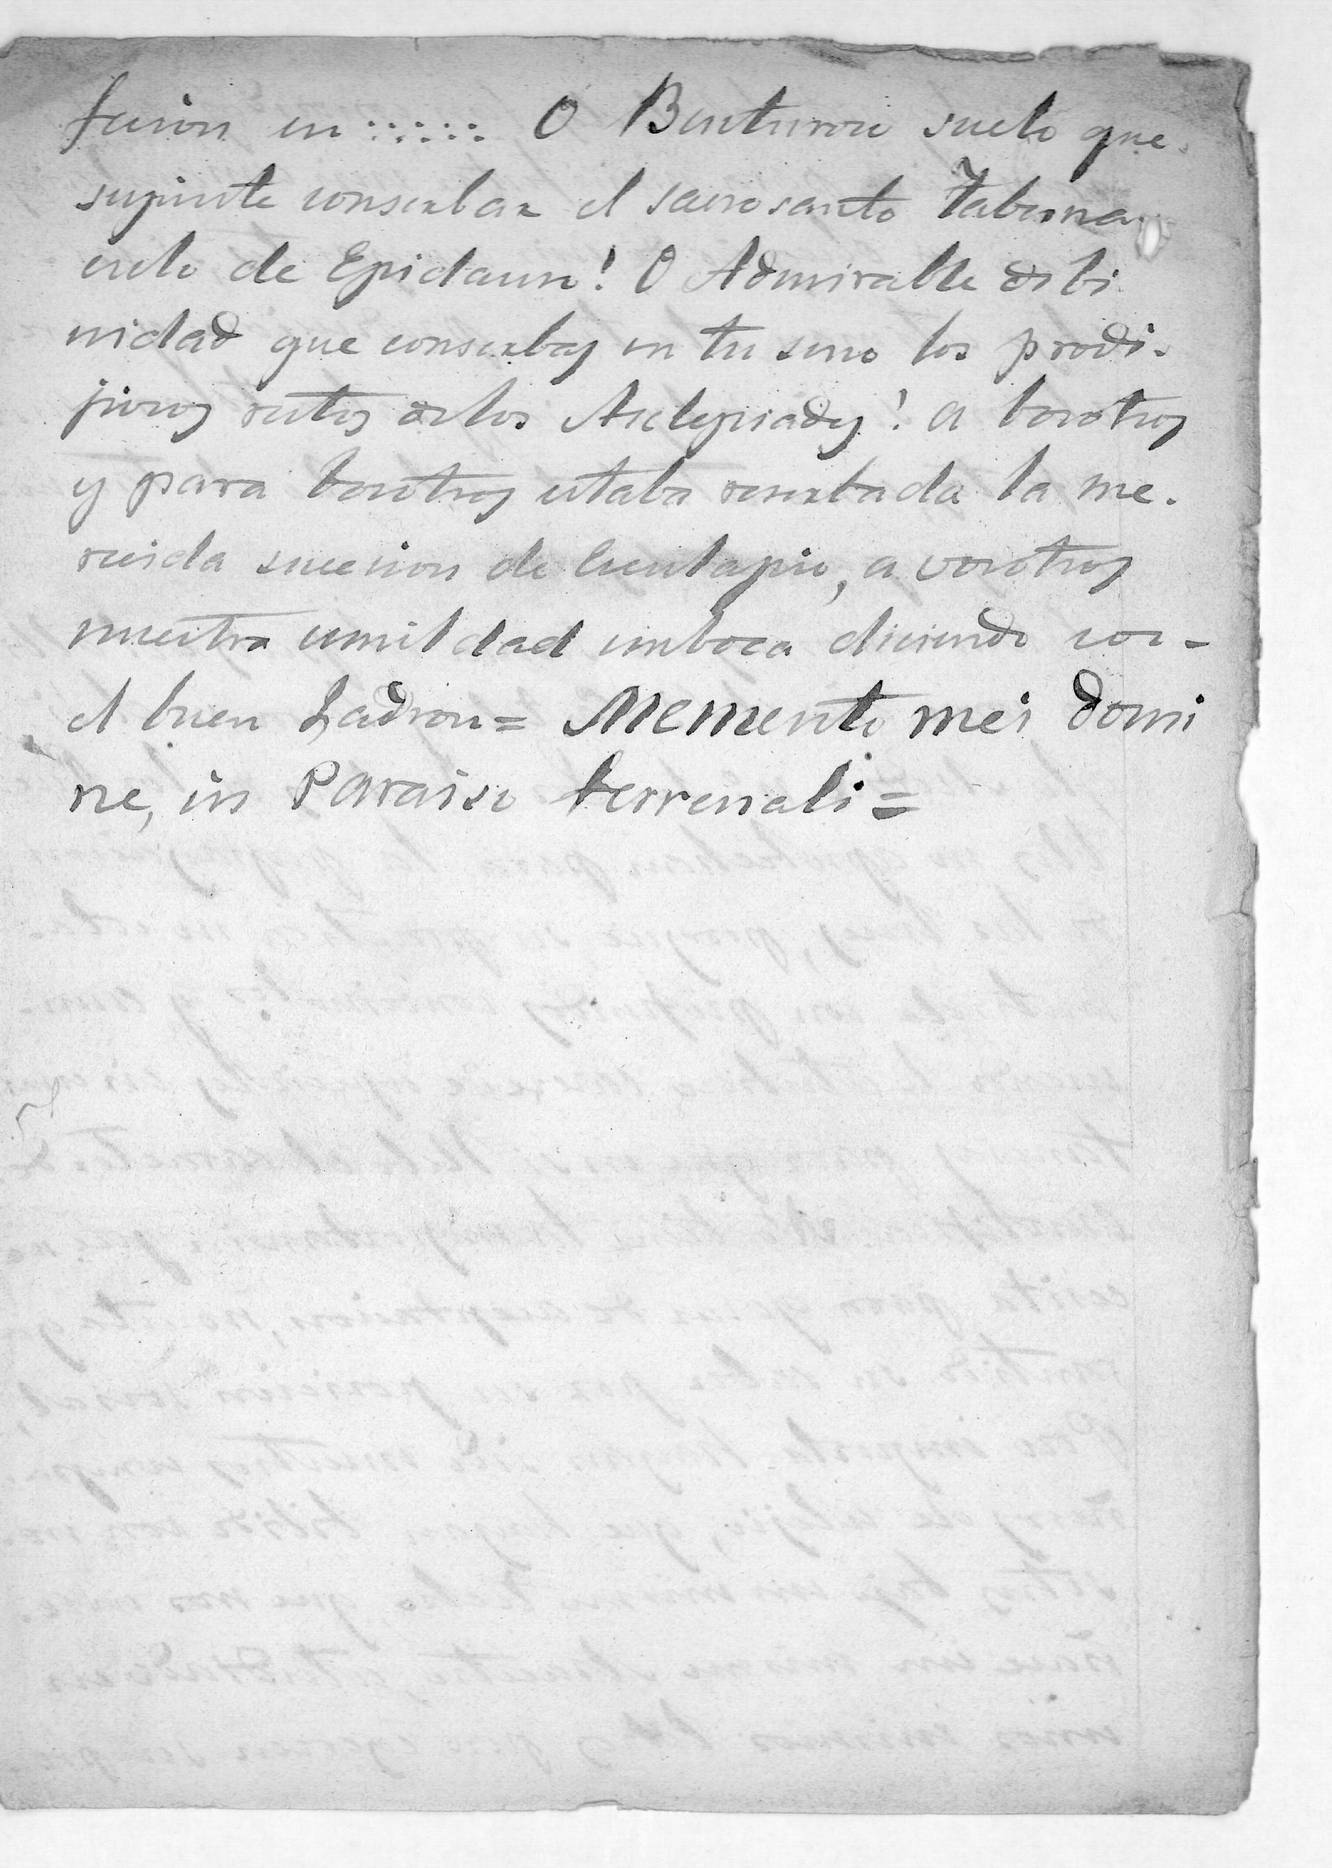 fecion en :::::: O Benturoso suelo que
supiste conserbar el sacrosanto Taberna
culo de Epidauro! O Admirable dibi
nidad que conserbas en tu seno los prodi-
jiosos restos de los Asclepiades! a bosotros
y para bosotros estaba reserbada la me-
recida sucesion de Esculapio, a vosotros
nuestra umildad imboca diciendo con-
el buen Ladron= Memento mei domi
ne, in Paraiso terrenali=